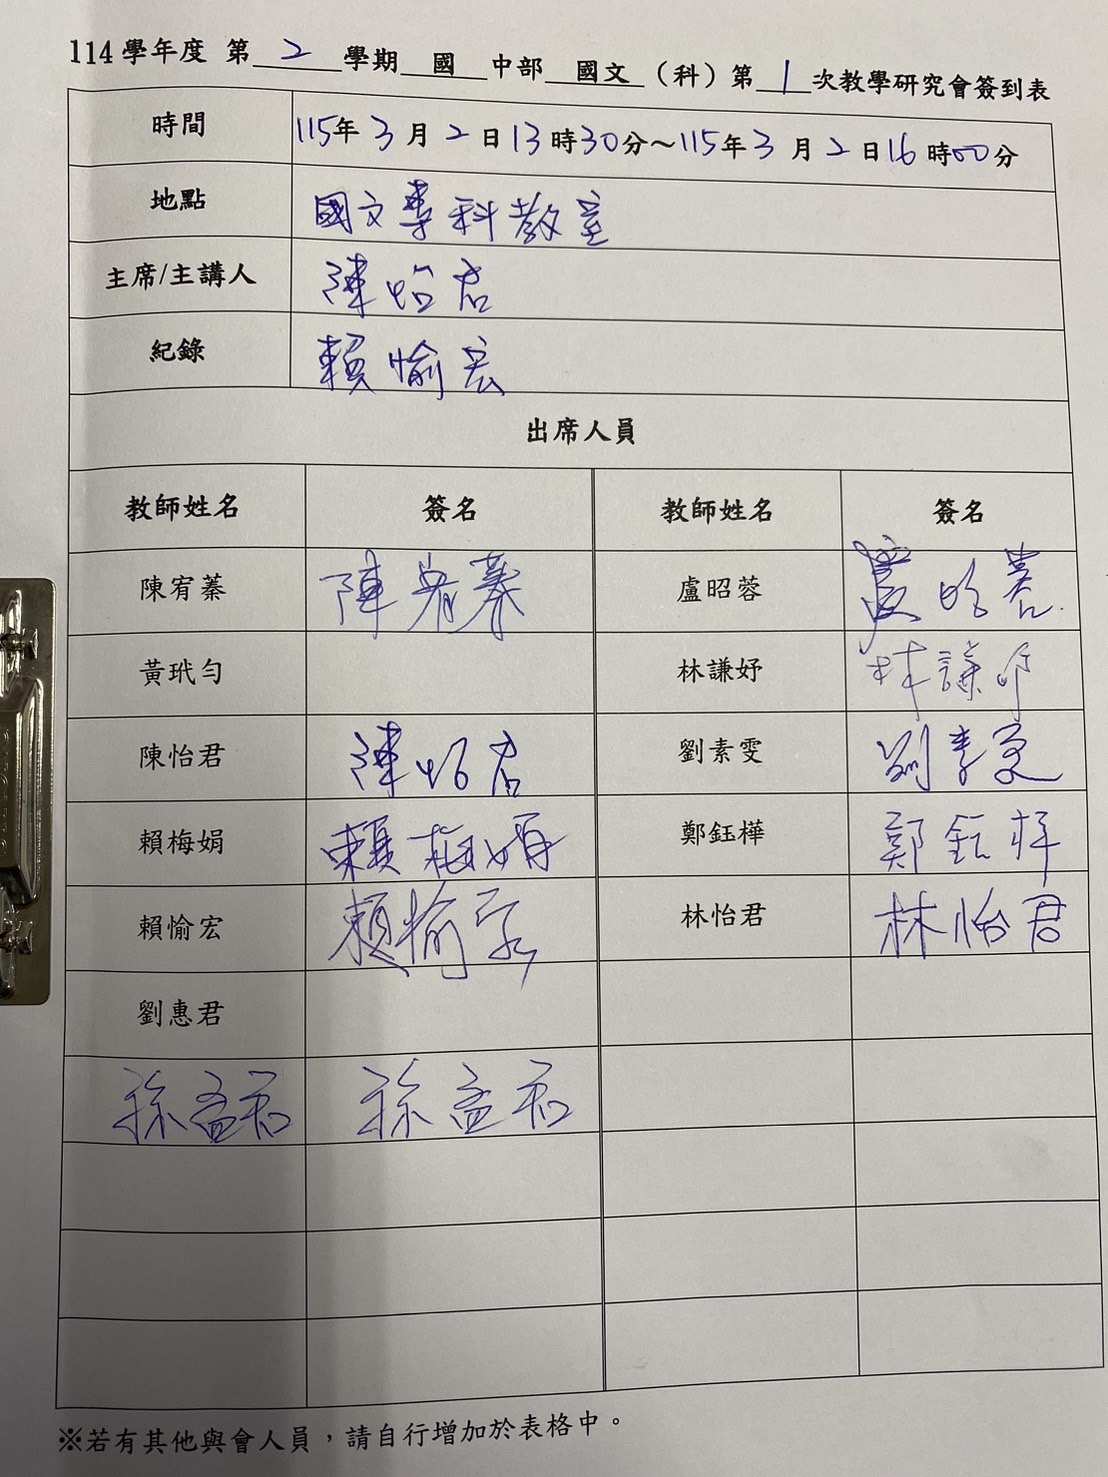 114學年度 第 2 學期 國 中部 國文 （科）第 1 次教學研究會簽到表
時間 115年 3月 2日 13時30分～115年 3月 2日 16時00分
地點 國文專科教室
主席/主講人 陳怡君
紀錄 賴愉宏
出席人員
教師姓名 簽名 教師姓名 簽名
陳宥蓁 陳宥蓁 盧昭蓉 盧昭蓉
黃玳勻 林謙妤 林謙妤
陳怡君 陳怡君 劉素雯 劉素雯
賴梅娟 賴梅娟 鄭鈺樺 鄭鈺樺
賴愉宏 賴愉宏 林怡君 林怡君
劉惠君
孫孟君 孫孟君
※若有其他與會人員，請自行增加於表格中。